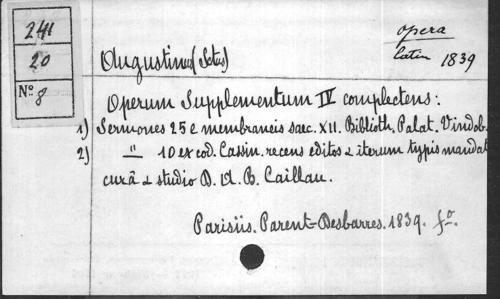 241
20
No 8
opera
latin 1839
Augustinus (Sctus)
Operum Supplementum IV complectens:
1) Sermones 25 e membraneis saec. XII. Biblioth. Palat. Vindob.
2) " 10 ex cod. Cassin. recens editos & iterum typis mandat
curâ & studio D. A. B. Caillau.
Parisiis. Parent-Desbarres. 1839. fo.